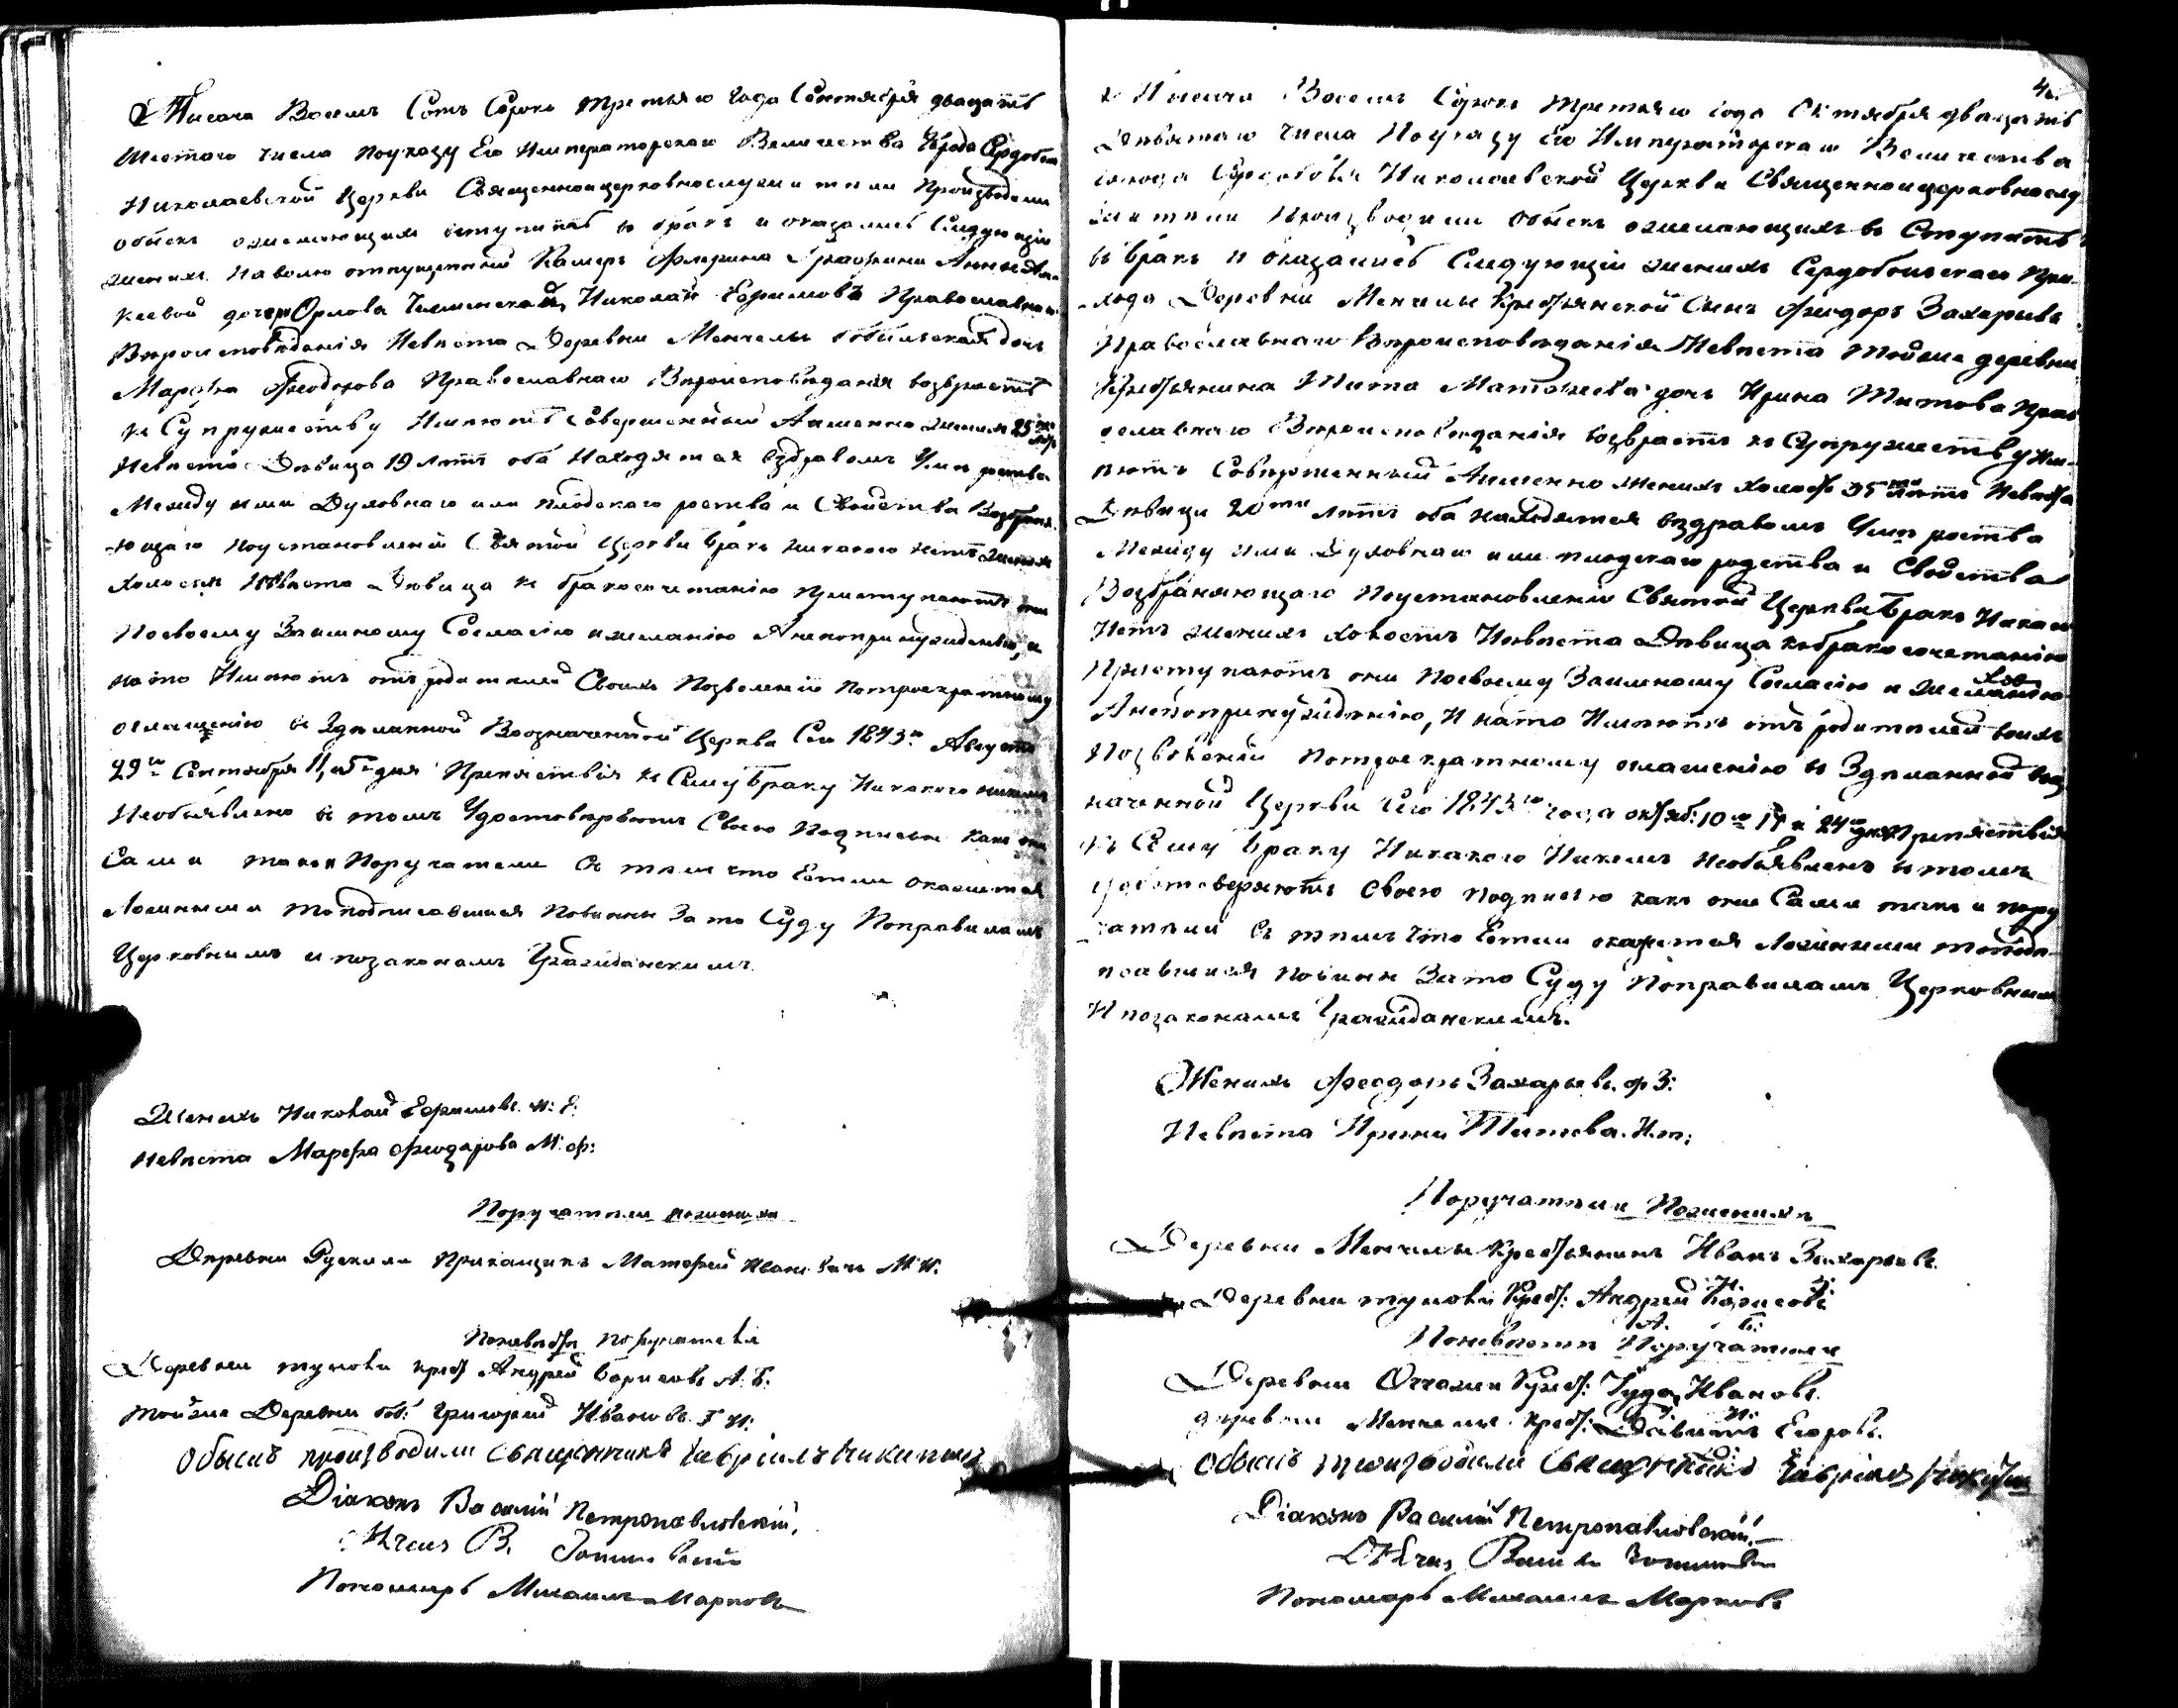 Тысяча Восемь Сотъ Сорокъ третьяго года Сентября двацать
шестаго числа поуказу Его Императорскаго Величества Города Сердоболя
Николаевской Церкви Священноицерковнослужители Производили
обыскъ ожелающихъ вступить въ бракъ и оказалось Следующее
женихъ на волю отпущенный Графини Анны Але-
ксеевой дочери Орлова Чесменской, Николай Ефимовъ Православнаго
Вероисповеданія Невеста Деревни Менчелы бобыльская дочь
Марфа Феодорова Православнаго Вероисповеданія возврастъ
къ Супружеству Имеютъ Совершенный Аименно женихъ 25
Невеста Девица 19 летъ оба Находятся вздравомъ Уме родства
Между ими Духовнаго или плодскаго родства и Свойства Возбраня-
ющаго поустановленію Святой Церкви бракъ никакого нетъ женихъ
холостъ Невеста Девица къ бракосочетанію приступаютъ они
Посвоему Взаимному Согласію ижеланію Анепопринужденію, и
нато Имеютъ отъ родителей Своихъ Позволеніе Потроекратному
оглашенію въ Зделанной Воозначенной Церкви Сего 1843го Августа
29го Сентября 5 дня Препятствія къ Сему браку Никакого никемъ
Необъявлено въ томъ Удостоверяютъ Своею Подписью Какъ они
Сами такъ и Поручатели Съ темъ что Естли окажется
Ложными топодписавшися Повинны Зато Суду Поправиламъ
Церковнымъ и позаконамъ Гражданскимъ.
Женихъ Николай Ефимовъ. Н: Е:
Невеста Марефа Феодорова М: Ф:
Поручатели пожениха
Деревни Рускала Прикащикъ Матофей М: И:
Поневесты поручатели
Деревни крес: Андрей Борисовъ А: Б:
тойже Деревни боб: Григорей Ивановъ. Г: И:
Обыскъ производили Священникъ Гавріилъ Никитинъ
Діаконъ Василій Петропавловскій,
Пономарь Михаилъ Марковъ
4.
Тысяча Восемь Сорокъ третьяго года Октября двацать
Девятаго числа Поуказу Его Императорскаго Величества
города Сердоболя Николаевской Церкви Священноицерковнослу
жители производили обыскъ ожелающихъ въ Ступить
въ бракъ и оказалось Следующіи женихъ Сердобольскаго При-
хода Деревни Менчелы Крестьянской Сынъ Феодоръ Захарьевъ
Православнаго Вероисповеданія Невеста тойже деревни
Крестьянина Тита Матвеева дочь Ирина Титова Прав
ославнаго Вероисповеданія возврастъ къ Супружеству Им-
еютъ Совершенный Аименно женихъ холостъ летъ Невеста
Девица 20ти летъ оба находятся вздравомъ Уме родства
Между ими Духовнаго или плодскаго родства и Свойства
Возбраняющаго Поустановленію Святой Церкви Бракъ Никако
Нетъ женихъ холостъ Невеста Девица кобракосочетанію
Приступаютъ они Посвоему Взаимному Согласію и желанію
Анепопринужденію, И нато Имеютъ отъ родителей воихъ
Позволеніе Потроекратному оглашенію въ Зделанной воз
наченной Церкви Сего 1843го года октяб: 10го 17 и 24го дня Препятствія
къ Сему браку Никакого Никемъ Необъявлено въ томъ
удостоверяютъ Своею подписью какъ они Сами такъ и пору
чатели Съ темъ что Естли окажется Ложными топодпи-
савшися повинны Зато Суду Поправиламъ Церковнымъ
И позаконамъ Гражданскимъ.
Женихъ Феодоръ Захарьевъ. Ф: З:
Невеста Ирина Титова. И: Т:
Поручатели Пожениха
Деревни Менчелы Крестьянинъ Иванъ Захарьевъ.
И: З:
Деревни Крес: Андрей Борисовъ
А: Б:
Поневесты Поручатели
Деревни Крес: Іуда Ивановъ.
І: И:
деревни Менчелы крес: Давитъ Егоровъ.
Обыскъ производили Священникъ Гавріилъ Никитинъ
Діаконъ Василій Петропавловскій,
Пономарь Михаилъ Марковъ